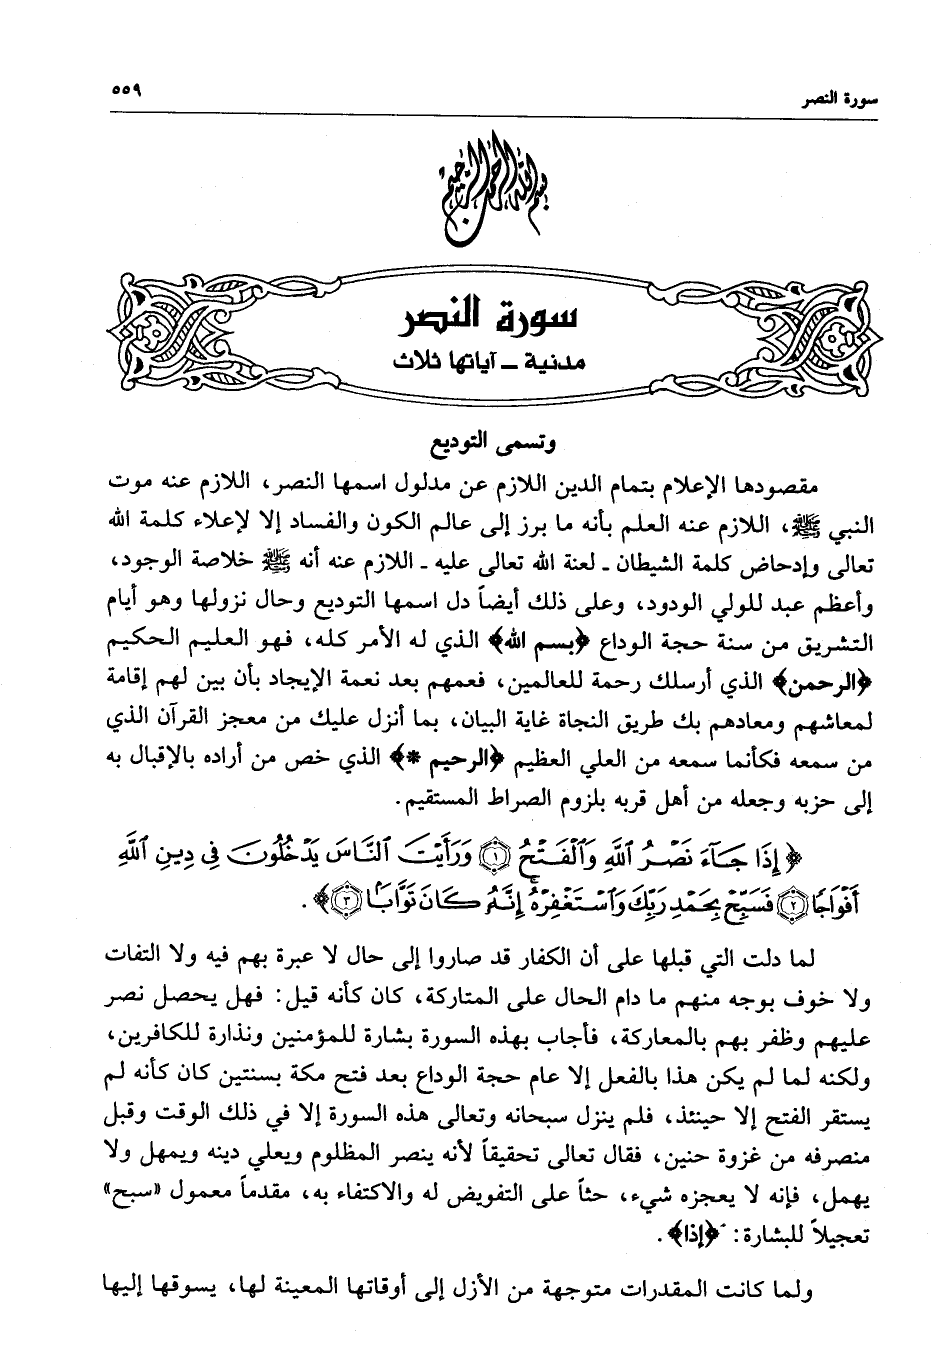 سورة النصر
٥٥٩
بسم الله الرحمن الرحيم
سورة النصر
مدنية ــ آياتها ثلاث
وتسمى التوديع
مقصودها الإعلام بتمام الدين اللازم عن مدلول اسمها النصر، اللازم عنه موت
النبي ﷺ، اللازم عنه العلم بأنه ما برز إلى عالم الكون والفساد إلا لإعلاء كلمة الله
تعالى وإدحاض كلمة الشيطان ـ لعنة الله تعالى عليه ـ اللازم عنه أنه ﷺ خلاصة الوجود،
وأعظم عبد للولي الودود، وعلى ذلك أيضاً دل اسمها التوديع وحال نزولها وهو أيام
التشريق من سنة حجة الوداع ﴿بسم الله﴾ الذي له الأمر كله، فهو العليم الحكيم
﴿الرحمن﴾ الذي أرسلك رحمة للعالمين، فعمهم بعد نعمة الإيجاد بأن بين لهم إقامة
لمعاشهم ومعادهم بك طريق النجاة غاية البيان، بما أنزل عليك من معجز القرآن الذي
من سمعه فكأنما سمعه من العلي العظيم ﴿الرحيم *﴾ الذي خص من أراده بالإقبال به
إلى حزبه وجعله من أهل قربه بلزوم الصراط المستقيم.
﴿إِذَا جَآءَ نَصْرُ ٱللَّهِ وَٱلْفَتْحُ ١ وَرَأَيْتَ ٱلنَّاسَ يَدْخُلُونَ فِى دِينِ ٱللَّهِ
أَفْوَاجًا ٢ فَسَبِّحْ بِحَمْدِ رَبِّكَ وَٱسْتَغْفِرْهُ إِنَّهُۥ كَانَ تَوَّابًۢا ٣﴾.
لما دلت التي قبلها على أن الكفار قد صاروا إلى حال لا عبرة بهم فيه ولا التفات
ولا خوف بوجه منهم ما دام الحال على المتاركة، كان كأنه قيل: فهل يحصل نصر
عليهم وظفر بهم بالمعاركة، فأجاب بهذه السورة بشارة للمؤمنين ونذارة للكافرين،
ولكنه لما لم يكن هذا بالفعل إلا عام حجة الوداع بعد فتح مكة بسنتين كان كأنه لم
يستقر الفتح إلا حينئذ، فلم ينزل سبحانه وتعالى هذه السورة إلا في ذلك الوقت وقبل
منصرفه من غزوة حنين، فقال تعالى تحقيقاً لأنه ينصر المظلوم ويعلي دينه ويمهل ولا
يهمل، فإنه لا يعجزه شيء، حثاً على التفويض له والاكتفاء به، مقدماً معمول «سبح»
تعجيلاً للبشارة: ﴿إذا﴾.
ولما كانت المقدرات متوجهة من الأزل إلى أوقاتها المعينة لها، يسوقها إليها